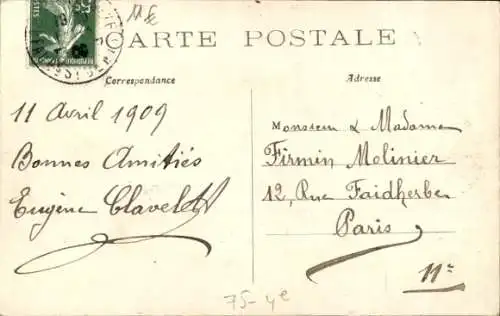 11 Fc
CARTE POSTALE
Correspondance
Adresse
11 Avril 1909
Bonnes Amitiés
Eugène Clavelet
Monsieur & Madame
Firmin Molinier
12, Rue Faidherbe
Paris
11e
75-4e